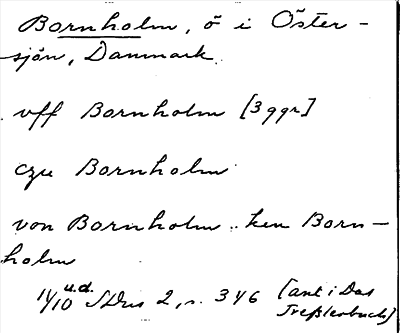 Bornholm, ö i Öster-
sjön, Danmark.
vff Bornholm [3 ggr]
czu Bornholm
von Bornholm .. ken Born-
holm
u.d. SDns 2, s. 346 [ant i Das
Treßlerbuch]